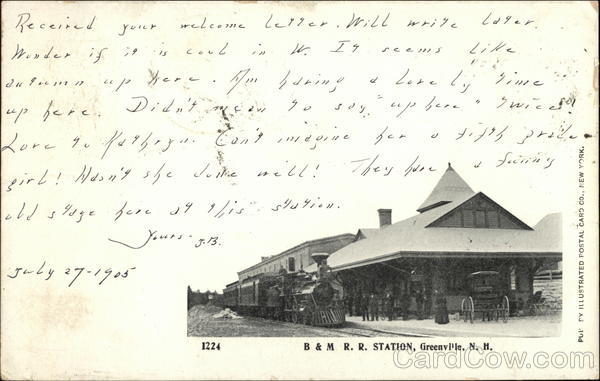 Received your welcome letter. Will write later.
Wonder if it is cool in W. It seems like
autumn up here. Am having a lovely time
up here. Didn't mean to say "up here" twice!
Love to Kathryn. Can't imagine her a fifth grade
girl! Hasn't she done well! They have a funny
old stage here at this station.
Yours - J.B.
July 27-1905
1224
B & M R. R. STATION, Greenville, N. H.
PUB. BY ILLUSTRATED POSTAL CARD CO., NEW YORK.
CardCow.com